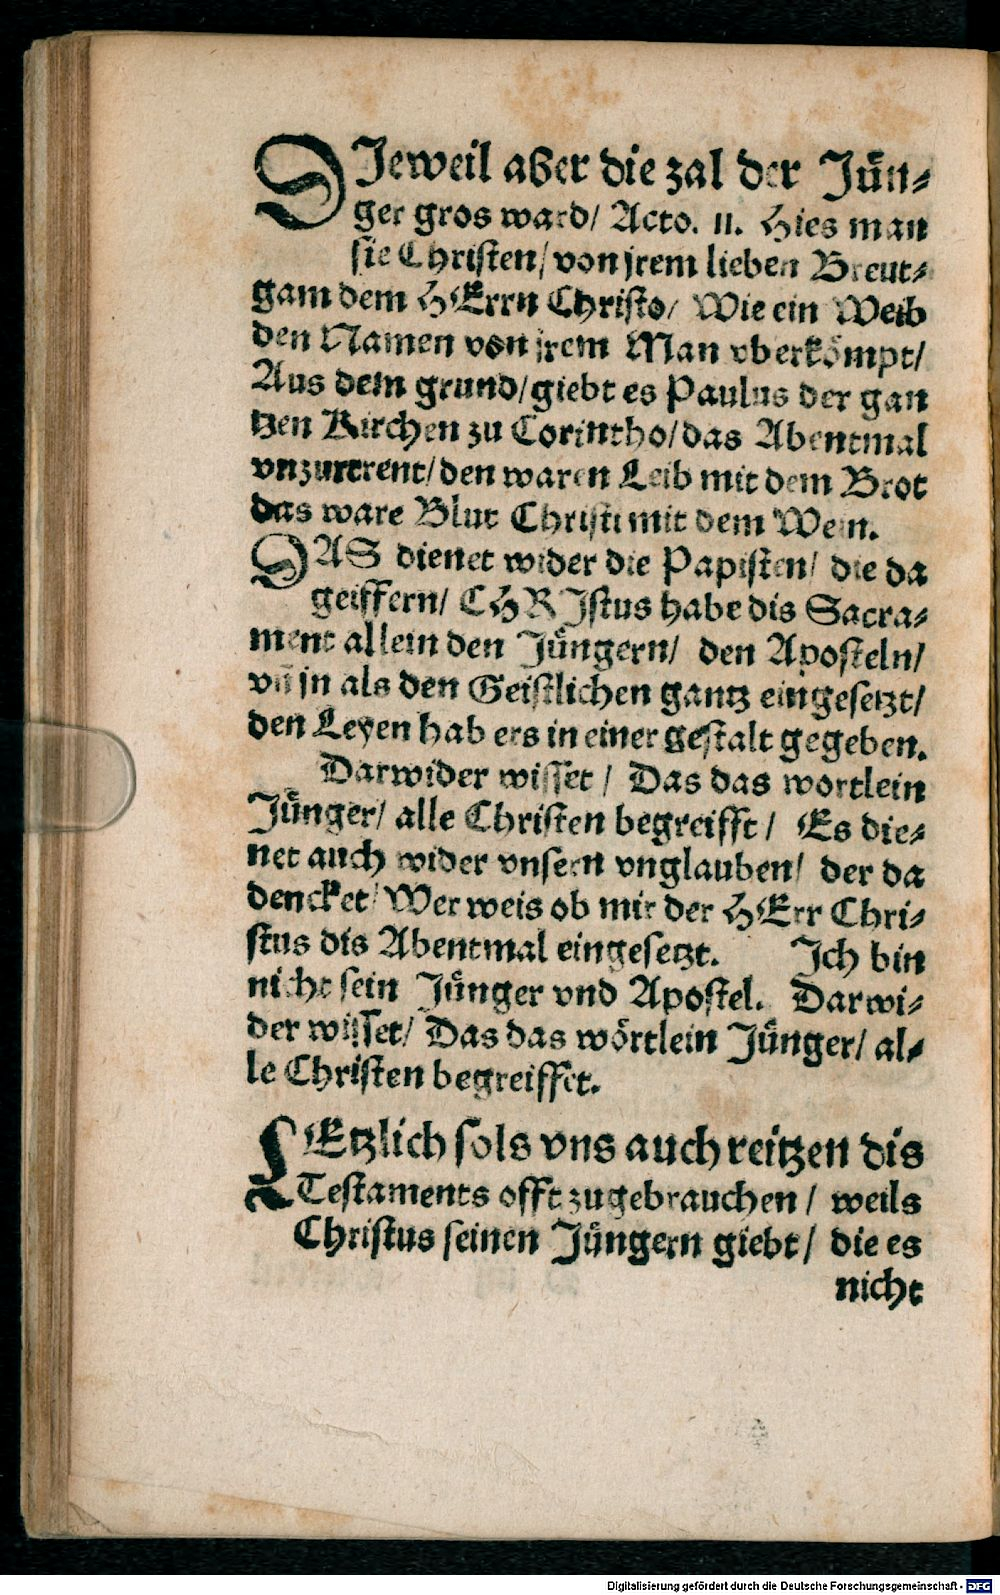 DJeweil aber die zal der Jün⸗
ger gros ward/ Acto. 11. Hies man
sie Christen/ von jrem lieben Breut⸗
gam dem HErrn Christo/ Wie ein Weib
den Namen von jrem Man vberkömpt/
Aus dem grund/ giebt es Paulus der gan
tzen Kirchen zu Corintho/ das Abentmal
vnzurtrent/ den waren Leib mit dem Brot
das ware Blut Christi mit dem Wein.
DAS dienet wider die Papisten/ die da
geiffern/ CHRJstus habe dis Sacra⸗
ment allein den Jüngern/ den Aposteln/
vñ jn als den Geistlichen gantz eingesetzt/
den Leyen hab ers in einer gestalt gegeben.
Darwider wisset/ Das das wortlein
Jünger/ alle Christen begreifft/ Es die⸗
net auch wider vnsern vnglauben/ der da
dencket/ Wer weis ob mir der HErr Chri⸗
stus dis Abentmal eingesetzt. Ich bin
nicht sein Jünger vnd Apostel. Darwi⸗
der wisset/ Das das wörtlein Jünger/ al⸗
le Christen begreiffet.
LEtzlich sols vns auch reitzen dis
Testaments offt zugebrauchen/ weils
Christus seinen Jüngern giebt/ die es
nicht
Digitalisierung gefördert durch die Deutsche Forschungsgemeinschaft - DFG